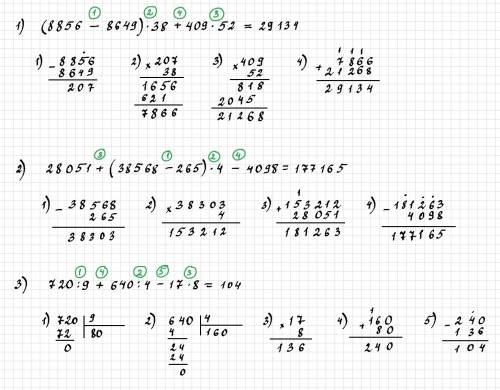 ① ② ④ ③
1) (8856 − 8649)·38 + 409·52 = 29134
1) − 8856
8649
207
2) × 207
38
1656
621
7866
3) × 409
52
818
2045
21268
4) 1 1 1
+ 7866
21268
29134
③ ① ② ④
2) 28051 + (38568 − 265)·4 − 4098 = 177165
1) − 38568
265
38303
2) × 38303
4
153212
3) 1
+ 153212
28051
181263
4) − 181263
4098
177165
① ④ ② ⑤ ③
3) 720:9 + 640:4 − 17·8 = 104
1) 720 9
72 80
0
2) 640 4
4 160
24
24
0
3) × 17
8
136
4) 1
+ 160
80
240
5) − 240
136
104